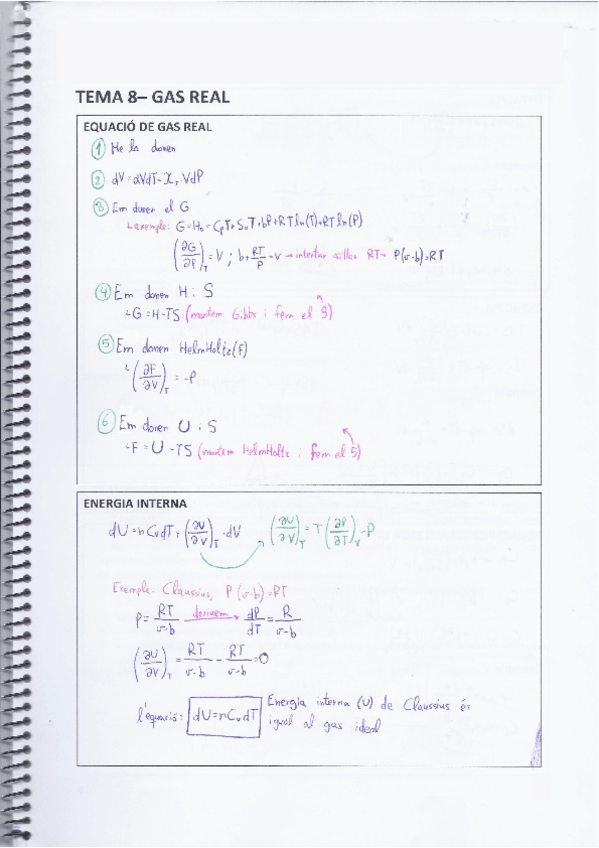 TEMA 8– GAS REAL
EQUACIÓ DE GAS REAL
① Me la donen
② dV = αVdT - χ_T · VdP
③ Em donen el G
↳ exemple: G = H₀ = CpT + S₀T + bP + RT ln(T) + RT ln(P)
(∂G/∂P)_T = V ; b + RT/P = v → intentar aïllar RT → P(v-b) = RT
④ Em donen H i S
↳ G = H - TS (montem Gibbs i fem el 3)
⑤ Em donen HelmHoltz (F)
↳ (∂F/∂V)_T = -P
⑥ Em donen U i S
↳ F = U - TS (montem HelmHoltz i fem el 5)
ENERGIA INTERNA
dU = nCvdT + (∂U/∂V)_T · dV (∂U/∂V)_T = T (∂P/∂T)_V - P
Exemple: Claussius, P(v-b) = RT
P = RT/v-b derivem → dP/dT = R/v-b
(∂U/∂V)_T = RT/v-b - RT/v-b = 0
l'equació: dU = nCvdT Energia interna (U) de Claussius és
igual al gas ideal